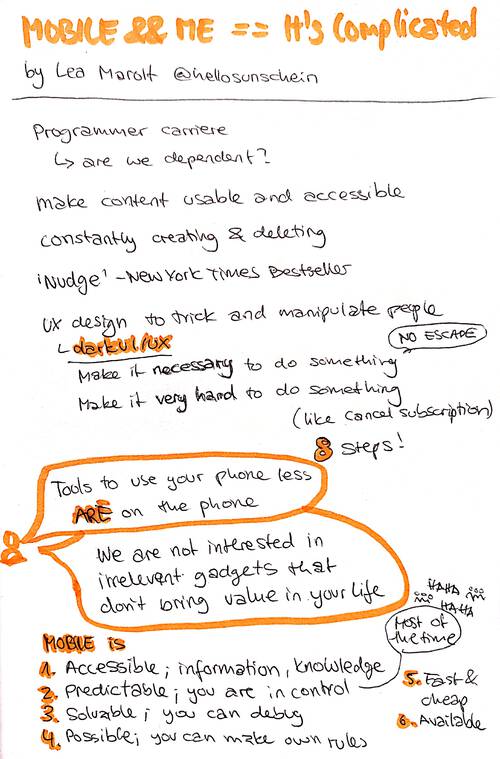 MOBILE && ME == It's Complicated
by Lea Marolt @hellosunschein
Programmer carriere
↳ are we dependent?
make content usable and accessible
constantly creating & deleting
'Nudge' - New York Times Bestseller
UX design to trick and manipulate people
↳ dark UI/UX
NO ESCAPE
Make it necessary to do something
Make it very hard to do something
(like cancel subscription)
8 steps!
Tools to use your phone less
ARE on the phone
We are not interested in
irrelevent gadgets that
don't bring value in your life
HAHA
HAHA
Most of
the time
MOBILE is
1. Accessible; information, knowledge
2. Predictable; you are in control
3. Solvable; you can debug
4. Possible; you can make own rules
5. Fast &
cheap
6. Available